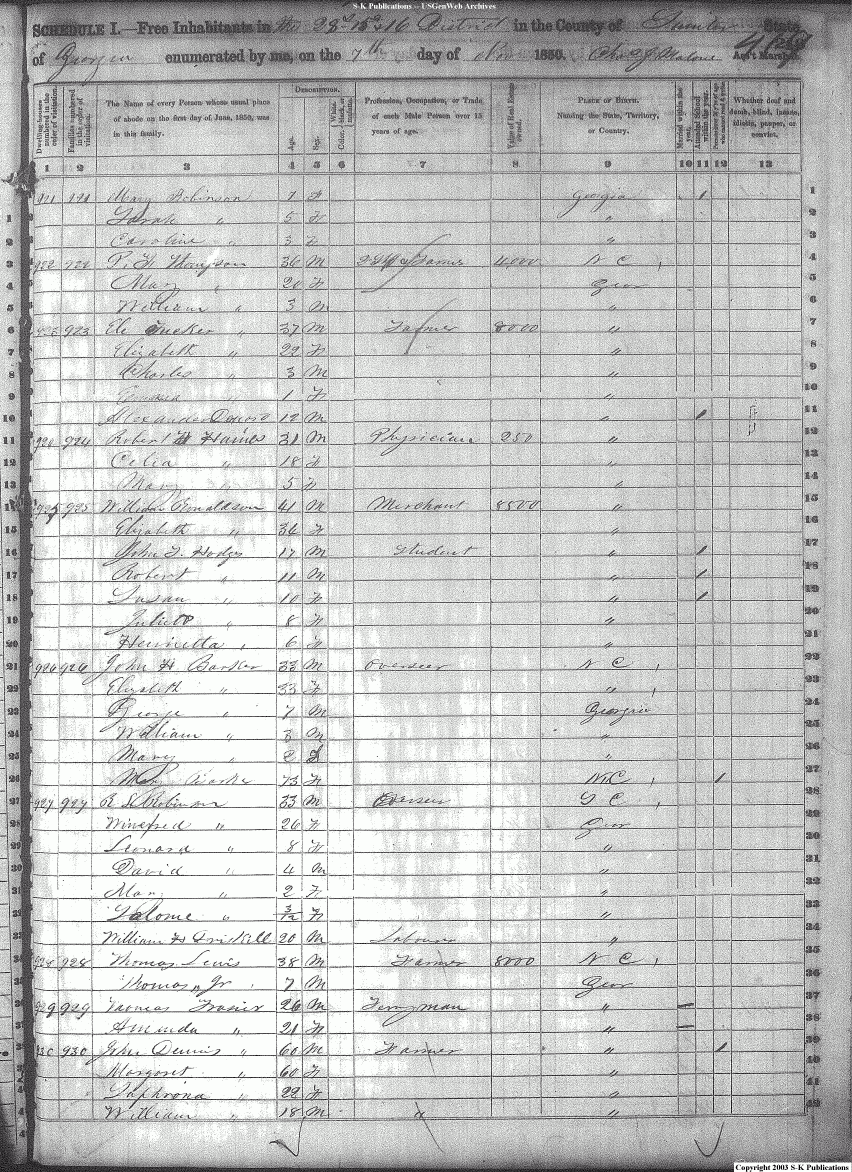 S-K Publications -- USGenWeb Archives
SCHEDULE I.—Free Inhabitants in the 28th 15 & 16 District in the County of Sumter State
of Georgia enumerated by me, on the 7th day of Nov 1850. Chas J Malone Ass't Marshal.
Dwelling-houses numbered in the order of visitation. Families numbered in the order of visitation. The Name of every Person whose usual place of abode on the first day of June, 1850, was in this family. DESCRIPTION. Age. Sex. White, black, or mulatto. Color Profession, Occupation, or Trade of each Male Person over 15 years of age. Value of Real Estate owned. PLACE OF BIRTH. Naming the State, Territory, or Country. Married within the year. Attended School within the year. Persons over 20 y'rs of age who cannot read & write. Whether deaf and dumb, blind, insane, idiotic, pauper, or convict.
1 2 3 4 5 6 7 8 9 10 11 12 13
921 921 Mary Robinson 7 F Georgia /
Sarah " 5 F "
Caroline " 3 F "
922 922 P. H. Thompson 36 M Farmer 4000 N C
Mary " 20 F Geor
William " 3 M "
923 923 Eli Tucker " 37 M Farmer 8000 "
Elizabeth " 22 F "
Charles " 3 M "
" 1 F "
Alexander 12 M " /
924 924 Robert H Haines 31 M Physician 250 "
Celia " 18 F "
Mary " 5 F "
925 925 William Ronaldson 41 M Merchant 8500 "
Elizabeth " 36 F "
John F. Hodges 17 M Student " /
Robert " 11 M " /
Susan " 10 F " /
Juliet " 8 F "
Henrietta " 6 F "
926 926 John H Barker 33 M Overseer N C
Elizabeth " 33 F "
George " 7 M Georgia
William " 3 M "
Mary " 2 F "
Mary Barker 73 F N.C /
927 927 R S Robinson 33 M Overseer S C
Winefred " 26 F Geor
Leonard " 8 F "
David " 4 M "
Mary " 2 F "
Salome " 3/12 F "
William H Driskill 20 M Labourer "
928 928 Thomas Lewis 38 M Farmer 8000 N C
Thomas " Jr 7 M Geor
929 929 Thomas Frasier 26 M Ferryman "
Amanda " 21 F "
930 930 John Dennis " 60 M Farmer " /
Margaret " 60 F "
Saphrona " 22 F "
William " 18 M " "
Copyright 2003 S-K Publications